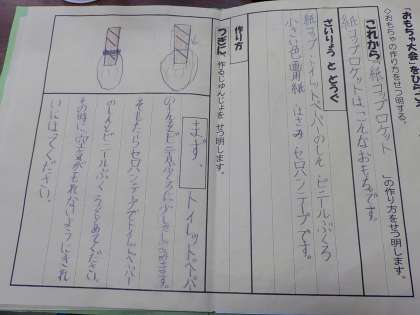 「おもちゃ大会」をひらこう
◇おもちゃの作り方をせつ明する。
これから、紙コップロケット の作り方をせつ明します。
紙コップロケットは、こんなおもちゃです。
ざいりょう と どうぐ
紙コップ トイレットペーパーのしん ビニールぶくろ
小さい色画用紙 はさみ セロハンテープです。
作り方
つぎに、作るじゅんじょを せつ明します。
まず、
トイレットペーパー
のしんをビニールぶくろに
そしたらセロハンテープでトイレットペーパー
のしんとビニールぶくろをとめてください。
その時に空気がもれないようにきれ
いにはってください。